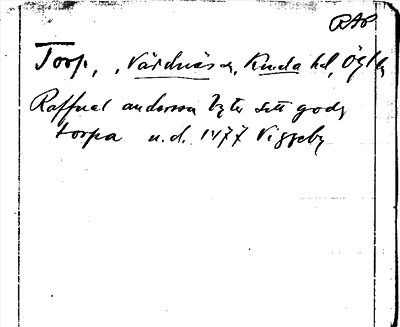 RAP
Torp, , Vårdnäs s, Kinda hd, Ögld
Raffual anderssen byter sitt gods
torpa u.d. 1477 Viggeby